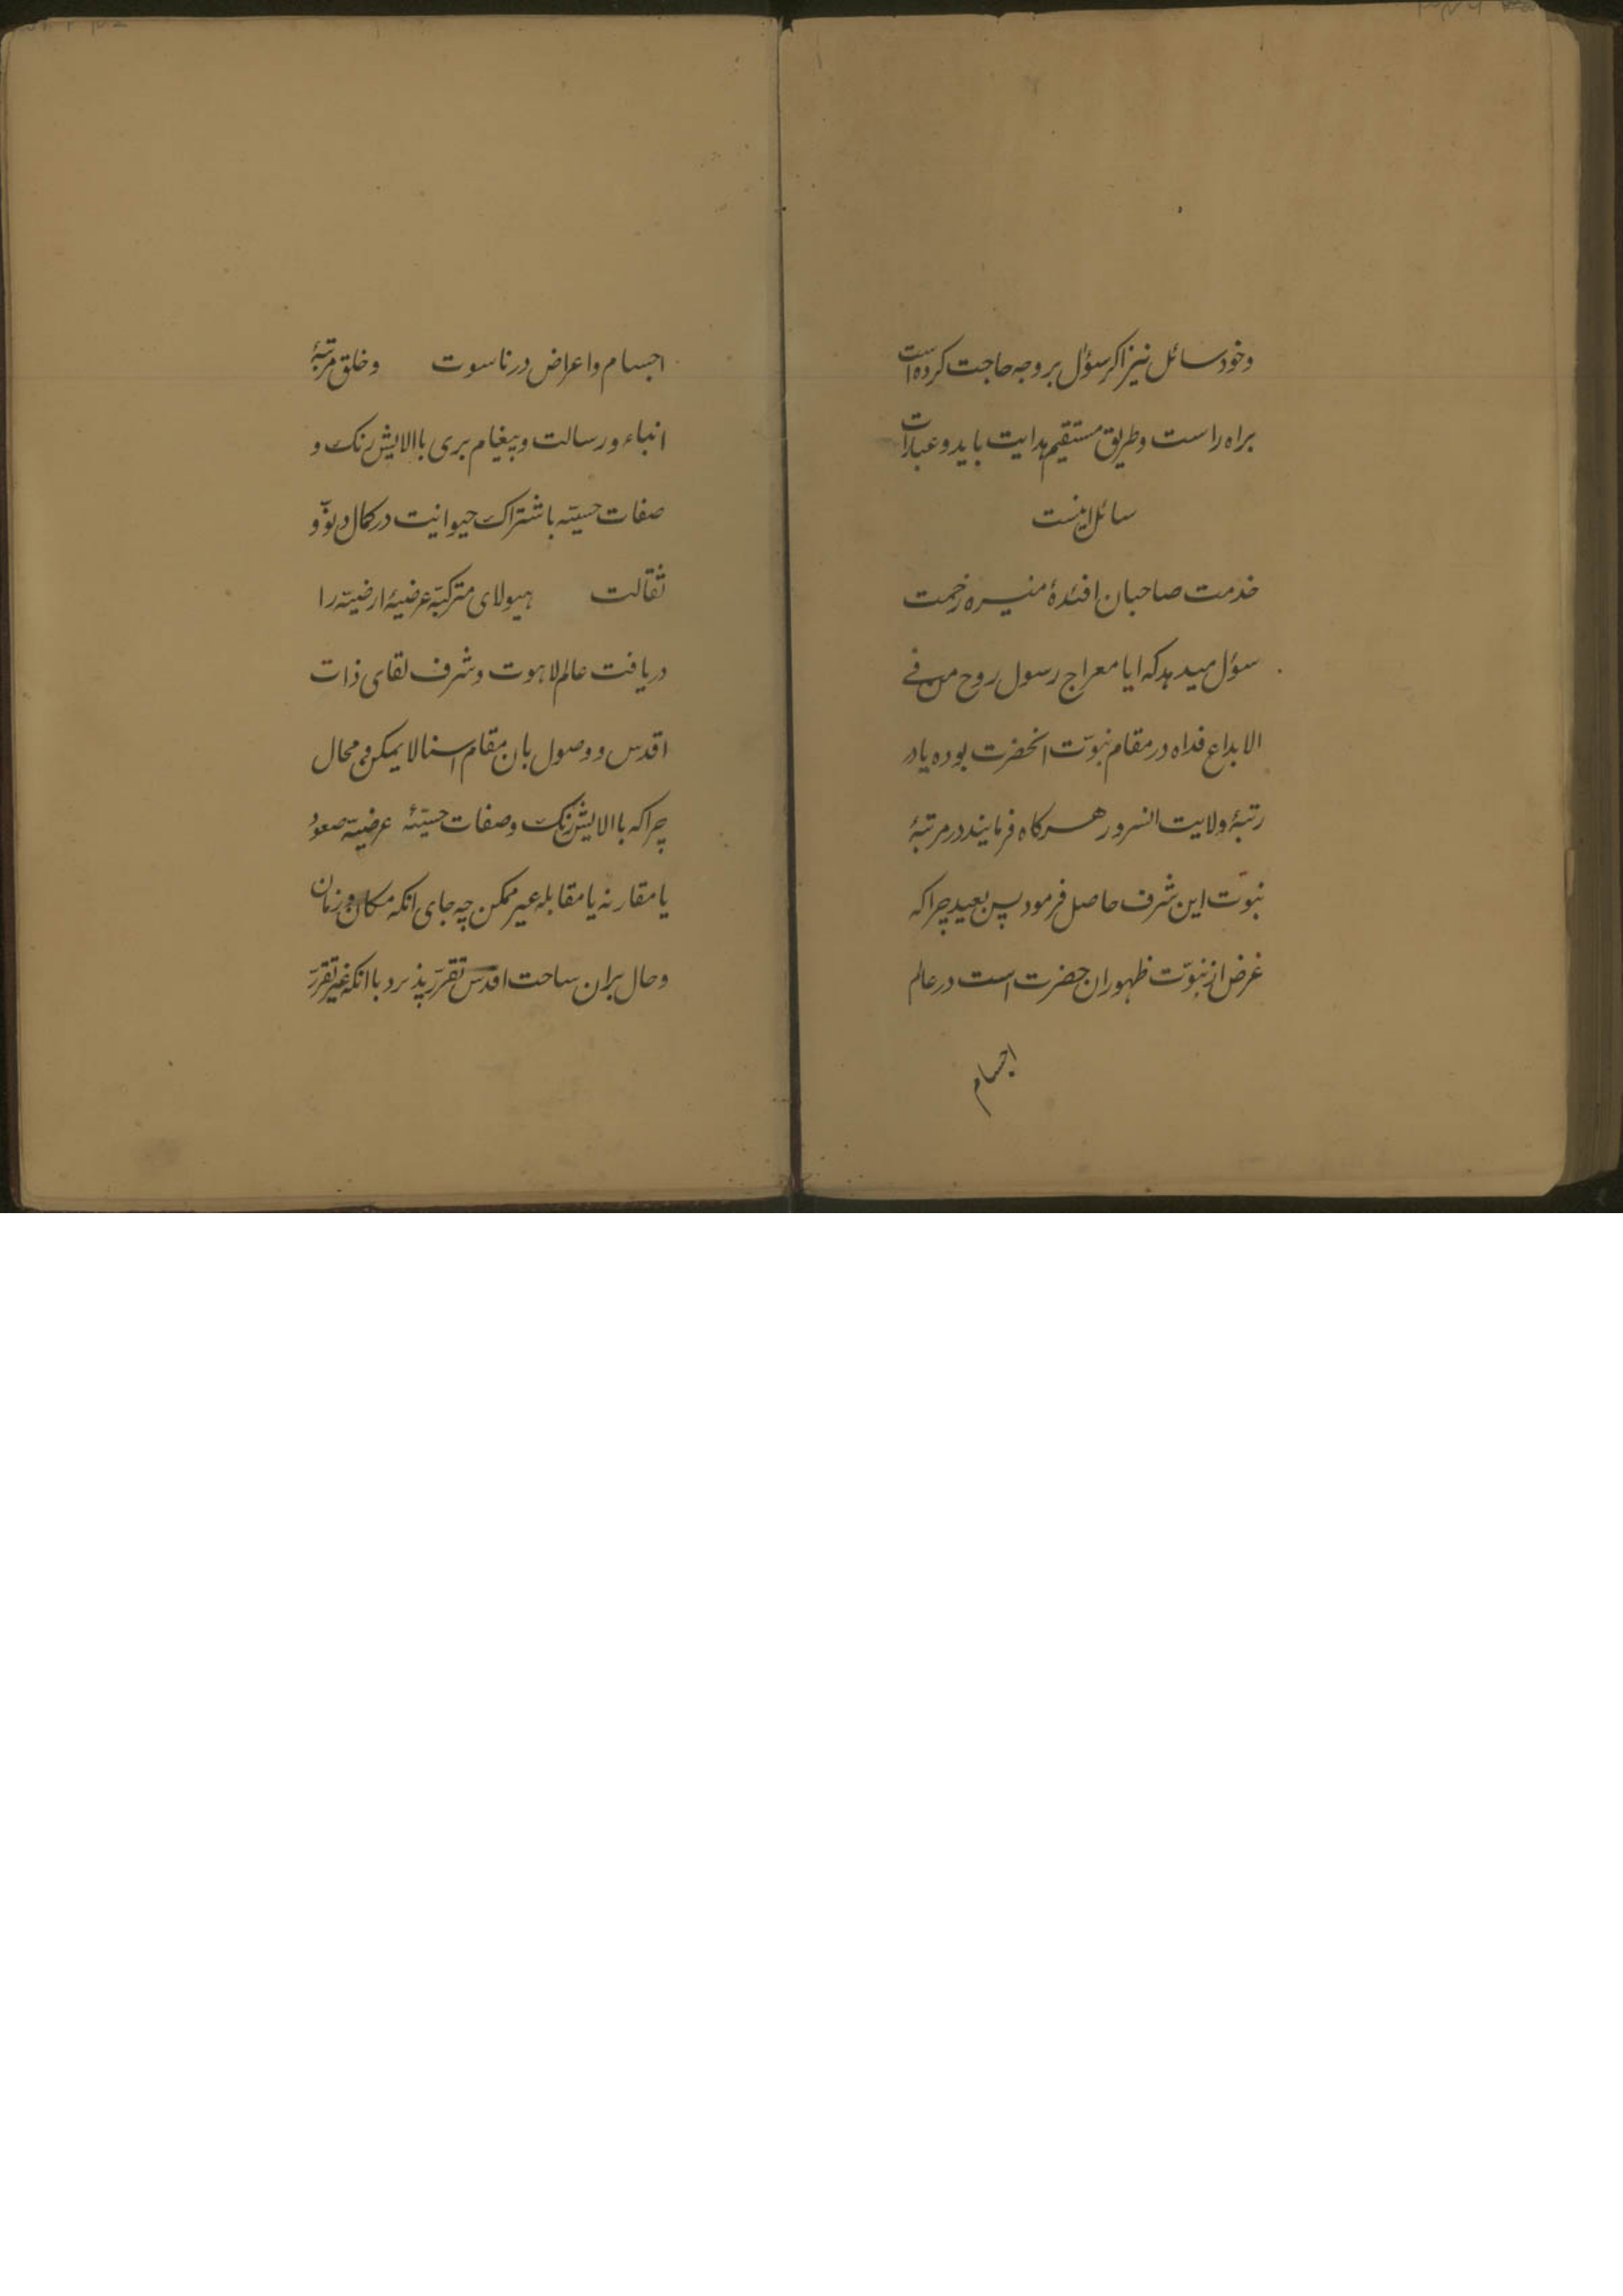 وخود سائل نیز اکر سؤال بر وجه حاجت کرده است
براه راست وطریق مستقیم هدایت باید وعبارات
سائل اینست
خدمت صاحبان افئدهٔ منیره زحمت
سؤل میدهد که ایا معراج رسول روح من فے
الابداع فداه در مقام نبوّت انحضرت بوده یا در
رتبهٔ ولایت انسرور هرکاه فرمایند در مرتبهٔ
نبوّت این شرف حاصل فرمود پس بعید چرا که
غرض از نبوّت ظهور ان حضرت است در عالم
اجسام
اجسام واعراض در ناسوت وخلق مرتبهٔ
انباء ورسالت وپیغام بری باالایش رنک و
صفات حسیّه باشتراک حیوانیت در کمال دنوّ و
ثقالت هیولای مترکبّه عرضیهٔ ارضیّه را
دریافت عالم لاهوت وشرف لقای ذات
اقدس ووصول بان مقام اسنا لا یمکن ومحال
چرا که باالایش رنک وصفات حسیّهٔ عرضیّه صعود
یا مقارنه یا مقابله غیر ممکن چه جای انکه مکان وزمان
وحال بران ساحت اقدس تقرّر پذیرد باانکه غیر تقرّر